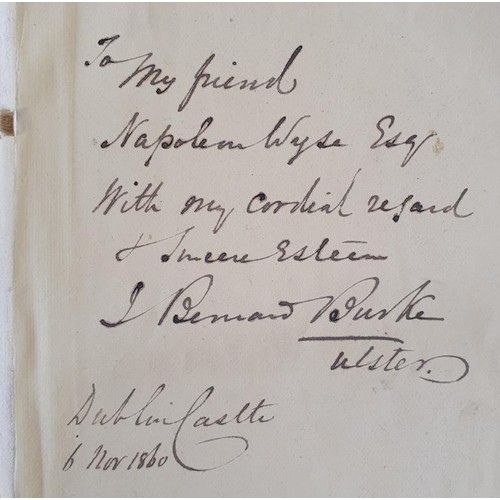 To My friend
Napoleon Wyse Esq
With my cordial regard
& Sincere Esteem
J Bernard Burke
Ulster.
Dublin Castle
6 Nov 1860